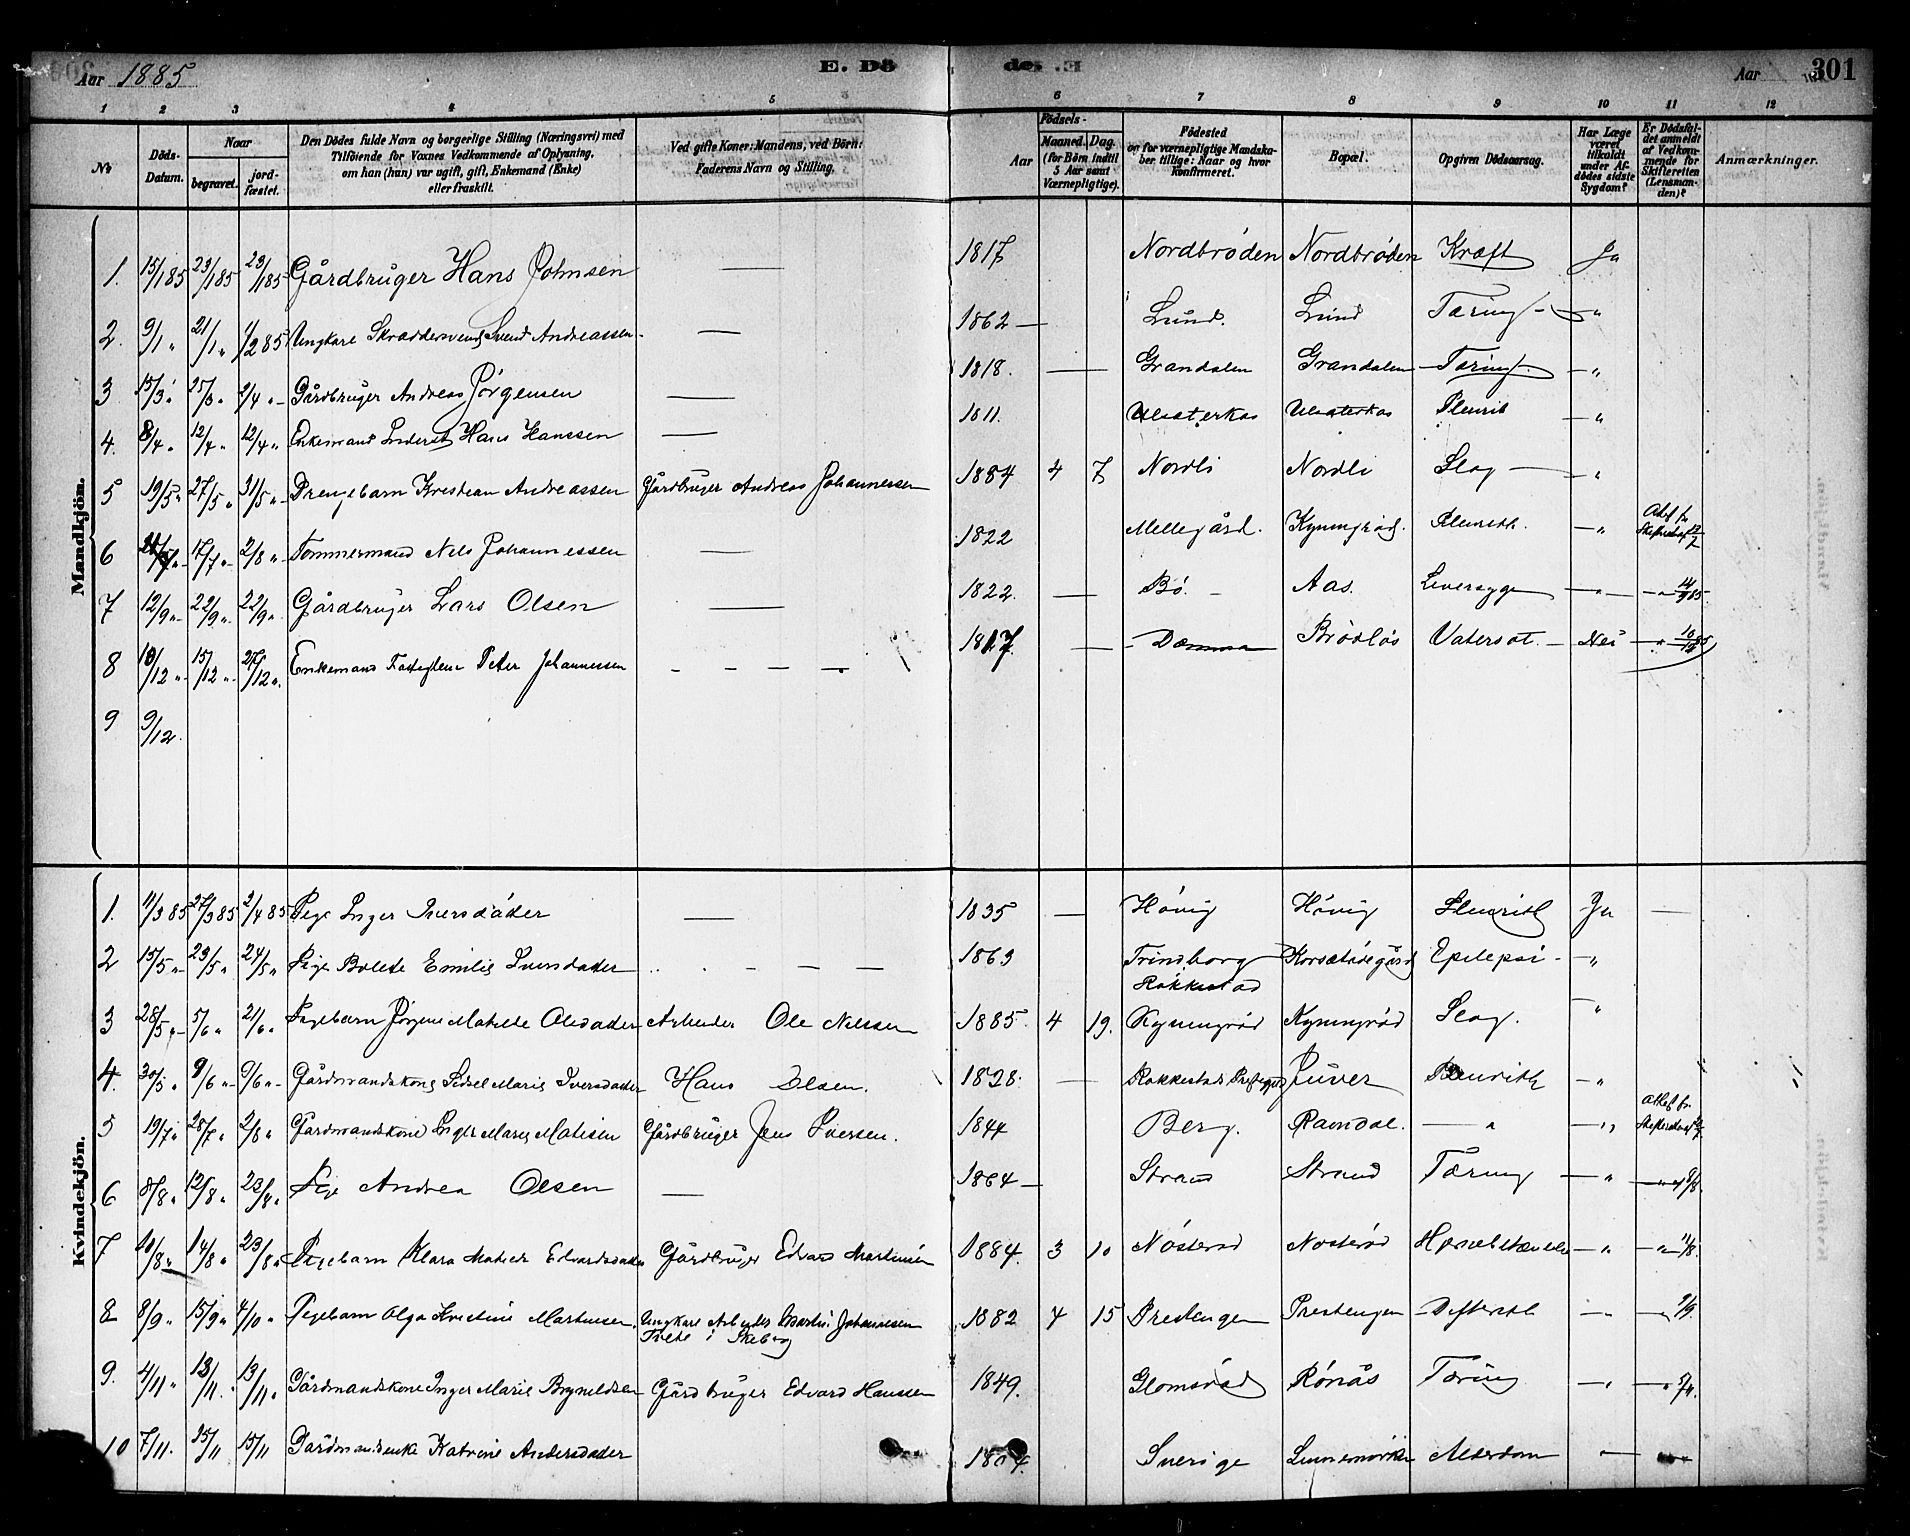 Aar 1885
E. Dö
de. E
Aar
301
1 2 3 4 5 6 7 8 9 10 11 12
№
Döds-Datum.
Naar
begravet.
jord-fæstet.
Den Dödes fulde Navn og borgerlige Stilling (Næringsvei) med
Tilföiende for Voxnes Vedkommende af Oplysning,
om han (hun) var ugift, gift, Enkemand (Enke)
eller fraskilt.
Ved gifte Koner: Mandens, ved Börn:
Faderens Navn og Stilling.
Födsels-
Aar
Maaned. Dag.
(for Börn indtil
5 Aar samt
Værnepligtige).
Födested
og for værnepligtige Mandska-
ber tillige: Naar og hvor
konfirmeret.
Bopæl.
Opgiven Dödsaarsag.
Har Læge
været
tilkaldt
under Af-
dødes sidste
Sygdom?
Er Dödsfal-
det anmeldt
af Vedkom-
mende for
Skifteretten
(Lensman-
den)?
Anmærkninger.
Mandkjön.
1. 15/1 85 23/1 85 23/1 85 Gårdbruger Hans Johnsen — 1817 Nordbrøden Nordbrøden Kræft Ja
2. 9/1 " 21/1 " 1/2 85 Ungkarl Skræddersvend Svend Andreassen — 1862 — Lund. Lund Tæring — "
3 15/3 " 25/3 " 2/4 " Gårdbruger Andreas Jörgensen — 1818. — Grandalen Grandalen Tæring — "
4. 8/4 " 12/4 " 12/4 " Enkemand Inderst Hans Hanssen — 1811. Pleurit — "
5 19/5 " 27/5 " 31/5 " Drengebarn Kristian Andreassen Gårdbruger Andreas Johannessen 1884 4 7 Nordli Nordli Slag — "
6 17/7 " 2/8 " Tømmermand Nels Johannessen — 1822 Mellegård. Kynungrød. Pleurith. — "
7 12/9 " 22/9 " 22/9 " Gårdbruger Lars Olsen — 1822. — Bö. Aas. Leversyge — " — " 14/9 85.
8 10/12 " 15/12 " 27/12 " Enkemand Peter Johannessen — — — — 1817. — Damma Brødløs Vatersot. — Nei — " 10/12 85
9 9/12.
Kvindekjön.
1. 11/3 85 27/3 85 2/4 85 Pige Inger Iversdatter — 1835 — Hövig Hövig Pleurith Ja —
2 15/5 " 23/5 " 24/5 " Pige Bolete Emilie Iversdatter — — — 1863 Trindborg Korsetødegård Epilepsi — "
Rakkestad
3 28/5 " 5/6 " 21/6 " Pigebarn Jörgine Matilde Olesdatter Arbeider Ole Nilssen 1885. 4 19. Kynungrød Kynungrød Slag. "
4. 30/5 " 9/6 " 9/6 " Gårdmandskone Sidsel Marie Iversdatter Hans Olsen. 1828. — Rakkestads Prestegjeld Juver Pleurith — "
5 19/7 " 28/7 " 2/8 " Gårdmandskone Inger Marie Matisen Gårdbruger Jens Iversen. 1844 Berg. Ramdal. — " — "
6 8/8 " 12/8 " 23/8 " Pige Andrea Olsen — 1864 — Strand Strand Tæring — "
7 10/8 " 14/8 " 23/8 " Pigebarn Klara Matilde Edvardsdatter Gårdbruger Edvard Martinsen 1884. 3 10 Nösterød Nösterød — " — " 11/8.
8 8/9 " 15/9 " 4/10 " Pigebarn Olga Kristine Martinsen. Ungkarl Arbeider Martin Johannessen 1882 4 15 Prestengen Prestengen Difterith — " 9/9.
Tvete i Skeberg
9. 4/11 " 13/11 " 13/11 " Gårdmandskone Inger Marie Brynildsen Gårdbruger Edvard Hanssen 1849. Glomsrød Rönås Tæring — " — " 5/11.
10 7/11. 15/11 15/11 Gårdmandsenke Katrine Andersdatter Sverige Alderdom —